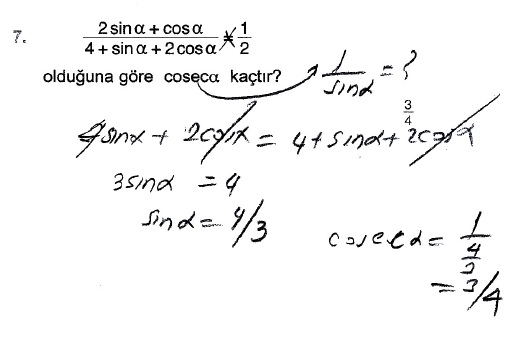 7. (2 sin α + cos α)/(4 + sin α + 2 cos α) = 1/2
olduğuna göre cosecα kaçtır? 1/sinα = ?
3/4
4sinα + 2cosα = 4 + sinα + 2cosα
3sinα = 4
sinα = 4/3
cosecα = 1/(4/3)
= 3/4